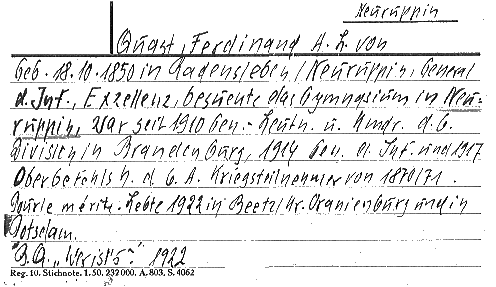 Neuruppin
Quast, Ferdinand A. L. von
Geb. 18.10.1850 in Radensleben/Neuruppin, General
d. Inf., Exzellenz, besuchte das Gymnasium in Neu-
ruppin, war seit 1910 Gen.-Leutn. u. Kmdr. d. 6.
Division in Brandenburg, 1914 Gen. d. Inf. und 1917
Oberbefehlsh. d. 6. A. Kriegsteilnehmer von 1870/71.
Pour le mérite. Lebte 1922 in Beetz/Kr. Oranienburg und in
Potsdam.
"B.A. „Wer ist's“ 1922
Reg. 10. Stichnote. 1. 50. 232 000. A. 803. S. 4062